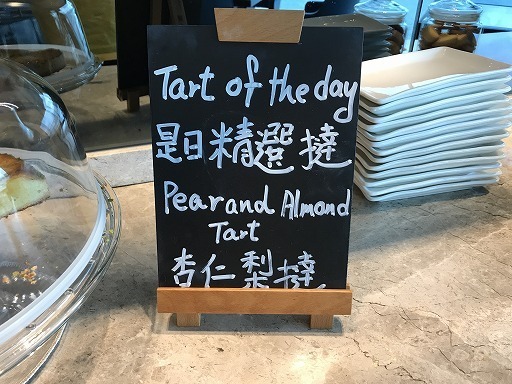 Tart of the day
是日精選撻
Pear and Almond
Tart
杏仁梨撻